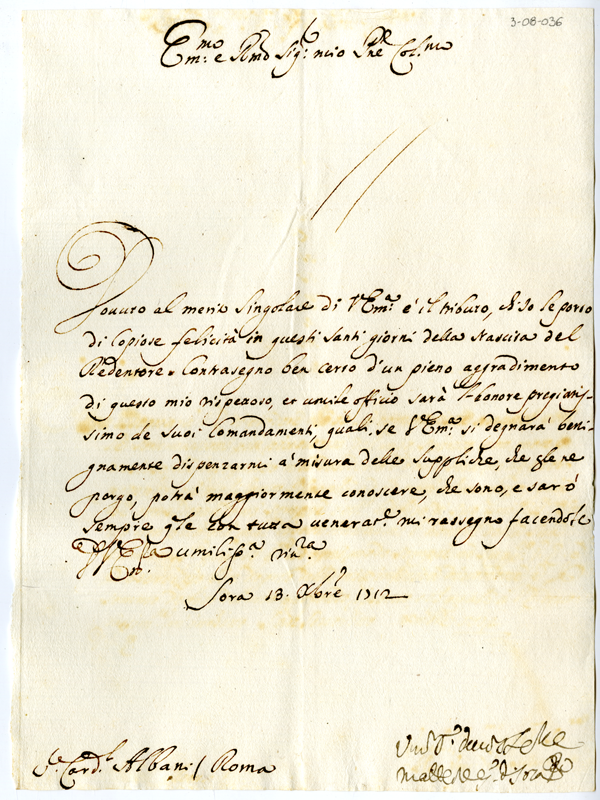 3-08-036
Em.mo e Rmo Sig.r mio Pne Col.mo
Douuto al merito singolare di V. Em.a è il tributo, ch'Io le porto
di copiose felicità in questi santi giorni della Nascita del
Redentore. Contrasegno ben certo d'un pieno aggradimento
di questo mio rispettoso, et umile officio sarà l'honore pregiatis-
simo de suoi Comandamenti, quali, se V. Em.a si degnarà beni-
gnamente dispenzarmi à misura delle suppliche, che gle ne
porgo, potrà maggiormente conoscere, che sono, e sarò
sempre q.le con tutta venerat.e mi rassegno facendole
umiliss.a riu.a
Sora 13. Xbre 1712
Card.l Albani / Roma
di Sora